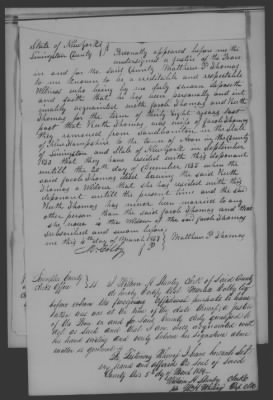 State of New York
Livingston County } Personally appeared before me the
undersigned a Justice of the Peace
in and for the said County Matthew P Thomas
to me known to be a creditable and respectable
Witness who being by me duly sworn deposeth
and saith that he has been personally and
acquainted with Jacob Thomas and Ruth
Thomas for the term of thirty eight years last
past that Ruth Thomas was wife of Jacob Thomas
They removed from Sandbornton in the State
of New Hampshire to the town of Avon in the County
of Livingston and State of New York in September
that they have resided with this deponent
until the 20th day of December 1835 when the
said Jacob Thomas died leaving the said Ruth
Thomas a Widow that she has resided with this
deponent until the present time and the said
Ruth Thomas has never been married to any
other person than the said Jacob Thomas and that
she now is the Widow of the said Jacob Thomas
Subscribed and sworn before
me this 4th day of March 1853 } Matthew P Thomas
Livingston County
Clerks Office } ss I William H Clerk of Said County
do hereby certify that
before whom the foregoing affidavit purports to have
taken was at the time of the date thereof a Justice
of the Peace in and for said County duly qualified to
act as such and that I am duly acquainted with
his hand writing and verily believe his signature above
written is genuine
In Testimony Whereof I have hereunto set
my hand and affixed the Seal of said
County this 5th day of March
William H Clerk